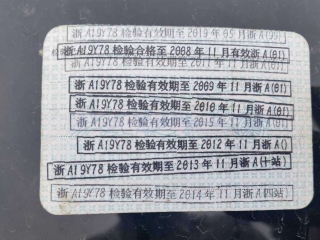 浙A19Y78检验有效期至2019年05月浙A(99)
浙A19Y78检验合格至2008年11月有效浙A(01)
浙A19Y78检验有效期至2011年11月浙A(01)
浙A19Y78检验有效期至2009年11月浙A(01)
浙A19Y78检验有效期至2010年11月浙A(01)
浙A19Y78检验有效期至2015年11月浙A(01)
浙A19Y78检验有效期至2012年11月浙A()
浙A19Y78检验有效期至2013年11月浙A(十站)
浙A19Y78检验有效期至2014年11月浙A四站)